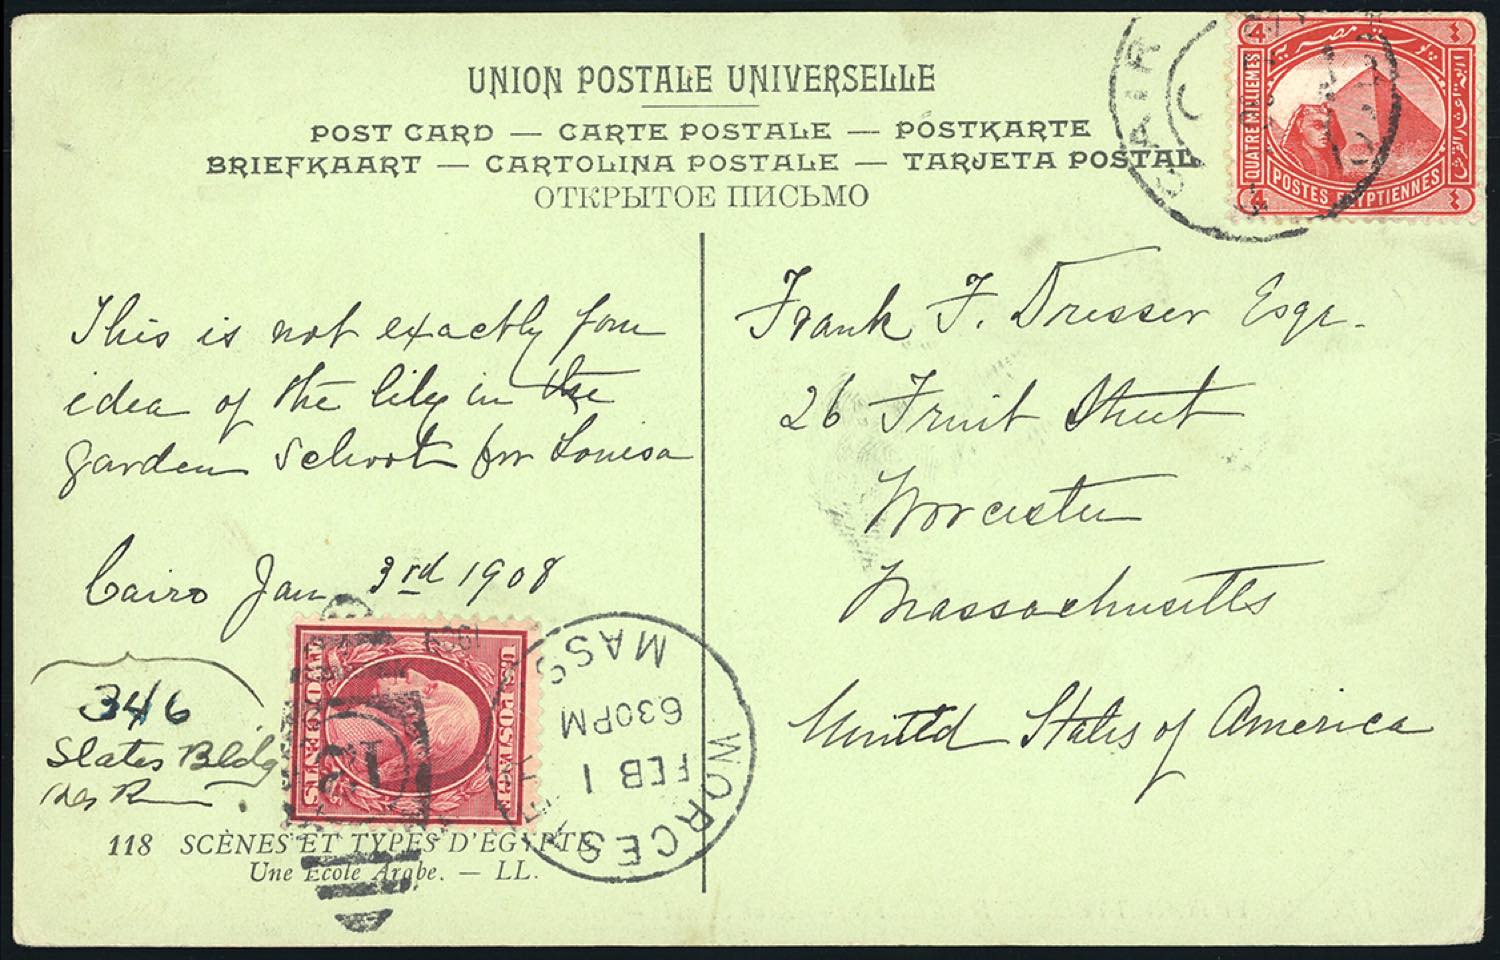 UNION POSTALE UNIVERSELLE
POST CARD — CARTE POSTALE — POSTKARTE
BRIEFKAART — CARTOLINA POSTALE — TARJETA POSTAL
ОТКРЫТОЕ ПИСЬМО
CAIR
4
بوسته مصرية
QUATRE MILLIEMES
POSTES EGYPTIENNES
4
This is not exactly your
idea of the lily in the
garden school for Louisa
Cairo Jan 3rd 1908
Frank F. Dresser Esqr.
26 Fruit Street
Worcester
Massachusetts
United States of America
346
Slater Bldg
U.S. POSTAGE
TWO CENTS
WORCESTER
MASS
FEB 1
630PM
1909
118 SCÈNES ET TYPES D'EGYPTE
Une École Arabe. — LL.